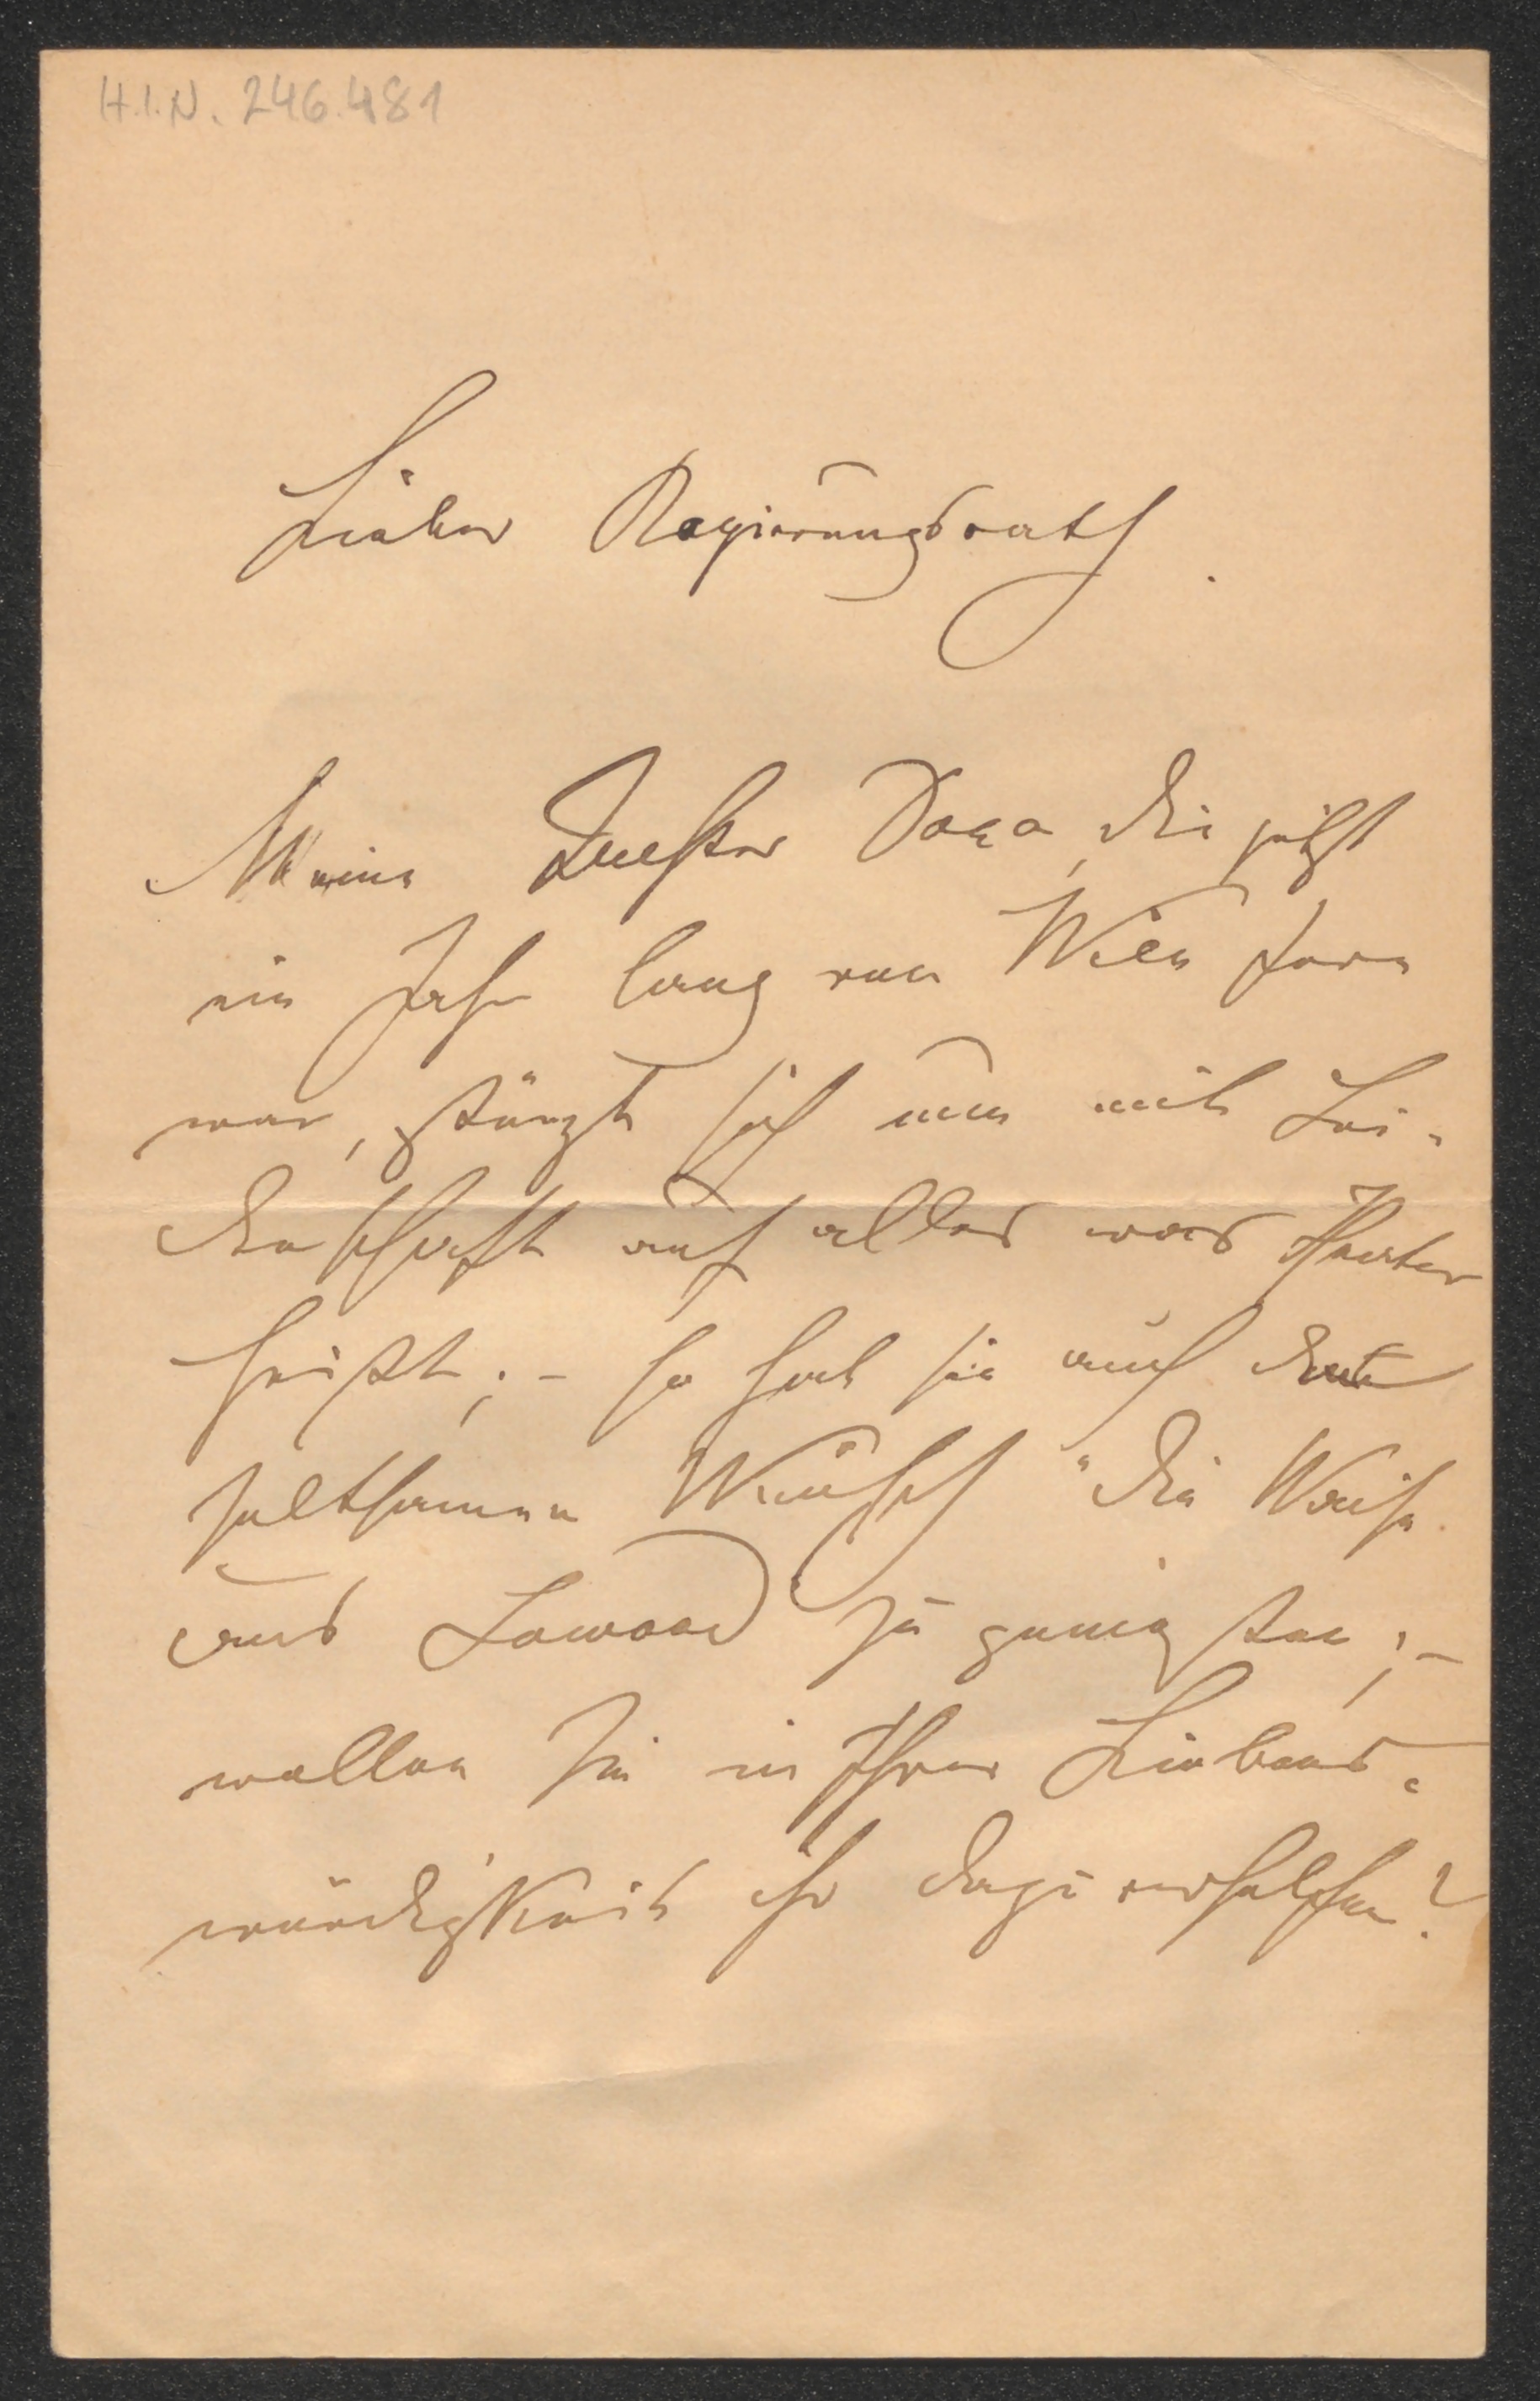 H.I.N. 246.481
Lieber Regierungsrath.
Meine Dora, die jetzt
ein Jahr lang von Wien fern
war, stürzt sich nun mit Lei-
denschaft auf alles was Theater
heißt; – so hat sie auch den
seltsamen Wunsch "die Waise
aus Lowood" zu genießen; –
wollen Sie in Ihrer Liebens-
würdigkeit ihr dazu verhelfen?